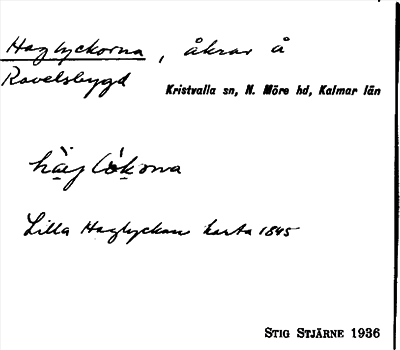 Haglyckorna, åkrar å
Ravelsbygd
Kristvalla sn, N. Möre hd, Kalmar län
Lilla Haglyckan karta 1845
STIG STJÄRNE 1936